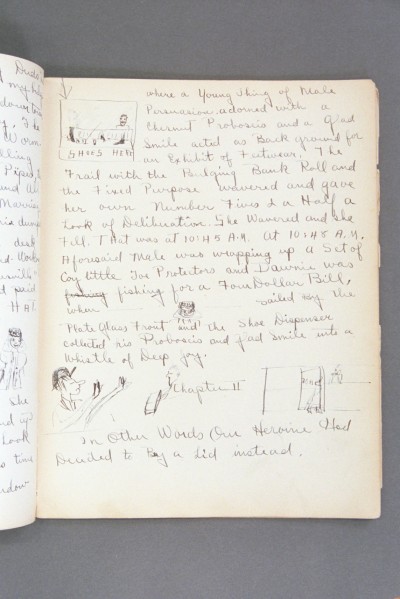 Dress
may hel
down tow
The
Worn
lling
Piped
und al
Marri
ris dump
desk
ed. Wor
ursvill"
paid
HAT
She
nd up
Look
s time
ndow"
where a Young thing of Male
Persuasion adorned with a
Chesnut Proboscis and a Glad
Smile acted as Back ground for
SHOES HERE
an Exhibit of Footwear. The
Frail with the Bulging Bank Roll and
the Fixed Purpose wavered and gave
her own Number Fives and a Half a
Look of Deliberation. She Wavered and she
Fell. That was at 10:45 A.M. At 10:48 A.M.
Aforesaid Male was wrapping up a Set of
Coy little Toe Protectors and Dawnie was
fishing for a Four Dollar Bill,
when sailed by the
"Plate Glass Front and the Shoe Dispenser
collected his Proboscis and glad smile into a
Whistle of Deep Joy.
Chapter II
In Other Words Our Heroine Had
Decided to By a Lid instead.